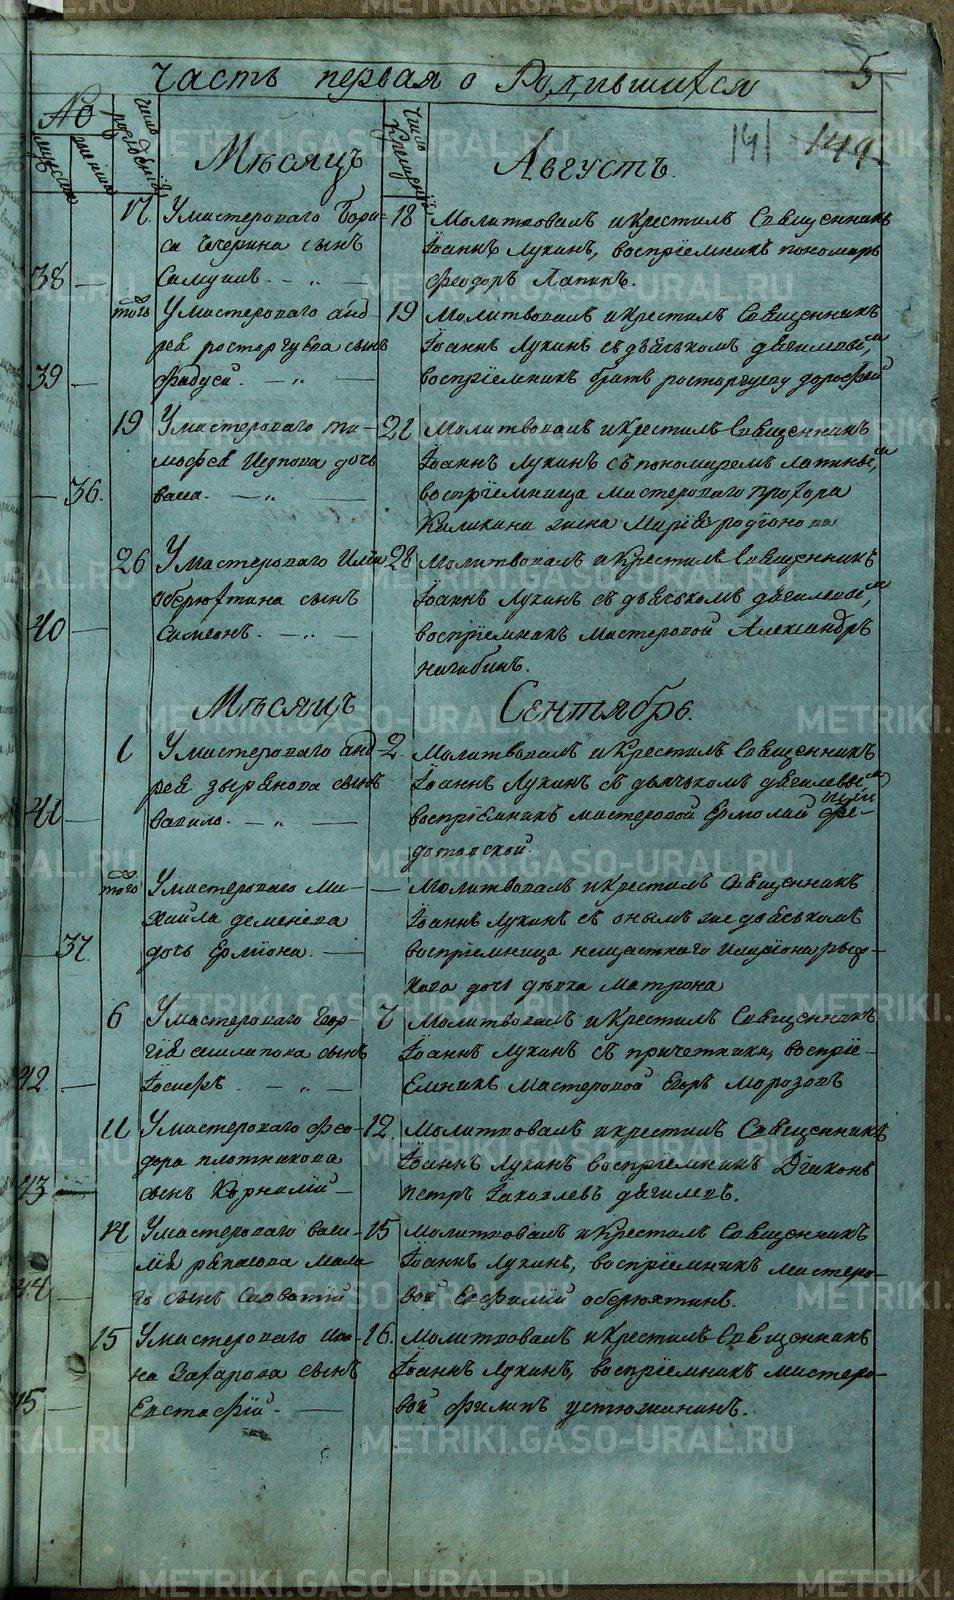 5
Часть первая о Родившихся
141 149
№
мужеска
женска
число рождения
Мѣсяцъ
число крещения
Августъ.
17. У мастероваго Бори-
са Чечерина сынъ
38 Самуилъ.
18 Молитвовалъ и крестилъ Священникъ
Іоаннъ Лукинъ, воспріемникъ пономарь
Феодоръ Лапинъ.
того У мастероваго Анд-
рея расторгуева сынъ
39 Фадѣй.
19 Молитвовалъ и крестилъ Священникъ
Іоаннъ Лукинъ съ дьячькомъ дягилевы,мъ
воспріемникъ братъ расторгуеву дорофей
19 У мастероваго ти-
мофея дочь
36. васа.
21 Молитвовалъ и крестилъ Священникъ
Іоаннъ Лукинъ съ пономаремъ лапины,мъ
воспріемница мастероваго прохора
Каликина жена Марія родіонова
26 У Мастероваго Ильи
Оберюхтина сынъ
40 Симеонъ.
28 Молитвовалъ и крестилъ Священникъ
Іоаннъ Лукинъ съ дьячькомъ дягилевы,мъ
воспріемникъ мастеровой Александръ
Нагибинъ.
Мѣсяцъ Сентябрь.
1 У мастероваго анд
рея зырянова сынъ
41 вавило.
2. Молитвовалъ и крестилъ Священникъ
Іоаннъ Лукинъ съ дьячькомъ дягилевы,мъ
воспріемникъ мастеровой Ермолай фе-
дотовской.
того У мастероваго Ми-
хаила деменева
37. дочь Ерміона.
Молитвовалъ и крестилъ Священникъ
Іоаннъ Лукинъ съ онымъ же дьячькомъ
воспріемница
кова дочь дѣвка Матрона
6 У мастероваго Геор-
гія шилапова сынъ
42. Іосифъ
7 Молитвовалъ и крестилъ Священникъ
Іоаннъ Лукинъ съ причетники, воспріе-
емникъ мастеровой Егоръ Морозовъ
11 У мастероваго Фео-
дора плотникова
43 сынъ Корнилій
12. Молитвовалъ и крестилъ Священникъ
Іоаннъ Лукинъ воспріемникъ Дьяконъ
петръ Іаковлевъ дягилевъ.
14 У мастероваго васи-
лія рѣпасова мала
44 го сынъ Савватій
15 Молитвовалъ и крестилъ Священникъ
Іоаннъ Лукинъ, воспріемникъ мастеро-
вой Евфимій оберюхтинъ.
15 У мастероваго Ива-
на Захарова сынъ
45 Евстафій.
16. Молитвовалъ и крестилъ Священникъ
Іоаннъ Лукинъ, воспріемникъ мастеро-
вой филипъ устюжанинъ.
METRIKI.GASO-URAL.RU